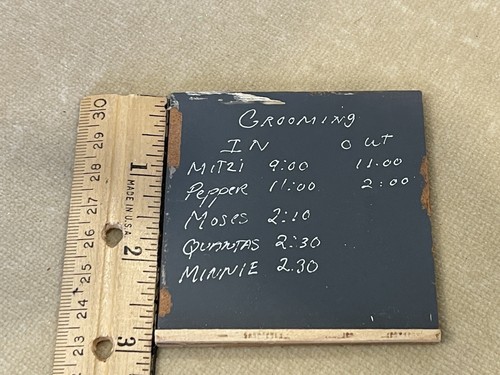 GROOMING
IN OUT
MITZI 9:00 11.00
Pepper 11:00 2:00
MOSES 2:10
QUANTAS 2:30
MINNIE 2.30
30
29
28
27
26
25
24
23
1
2
3
MADE IN U.S.A.